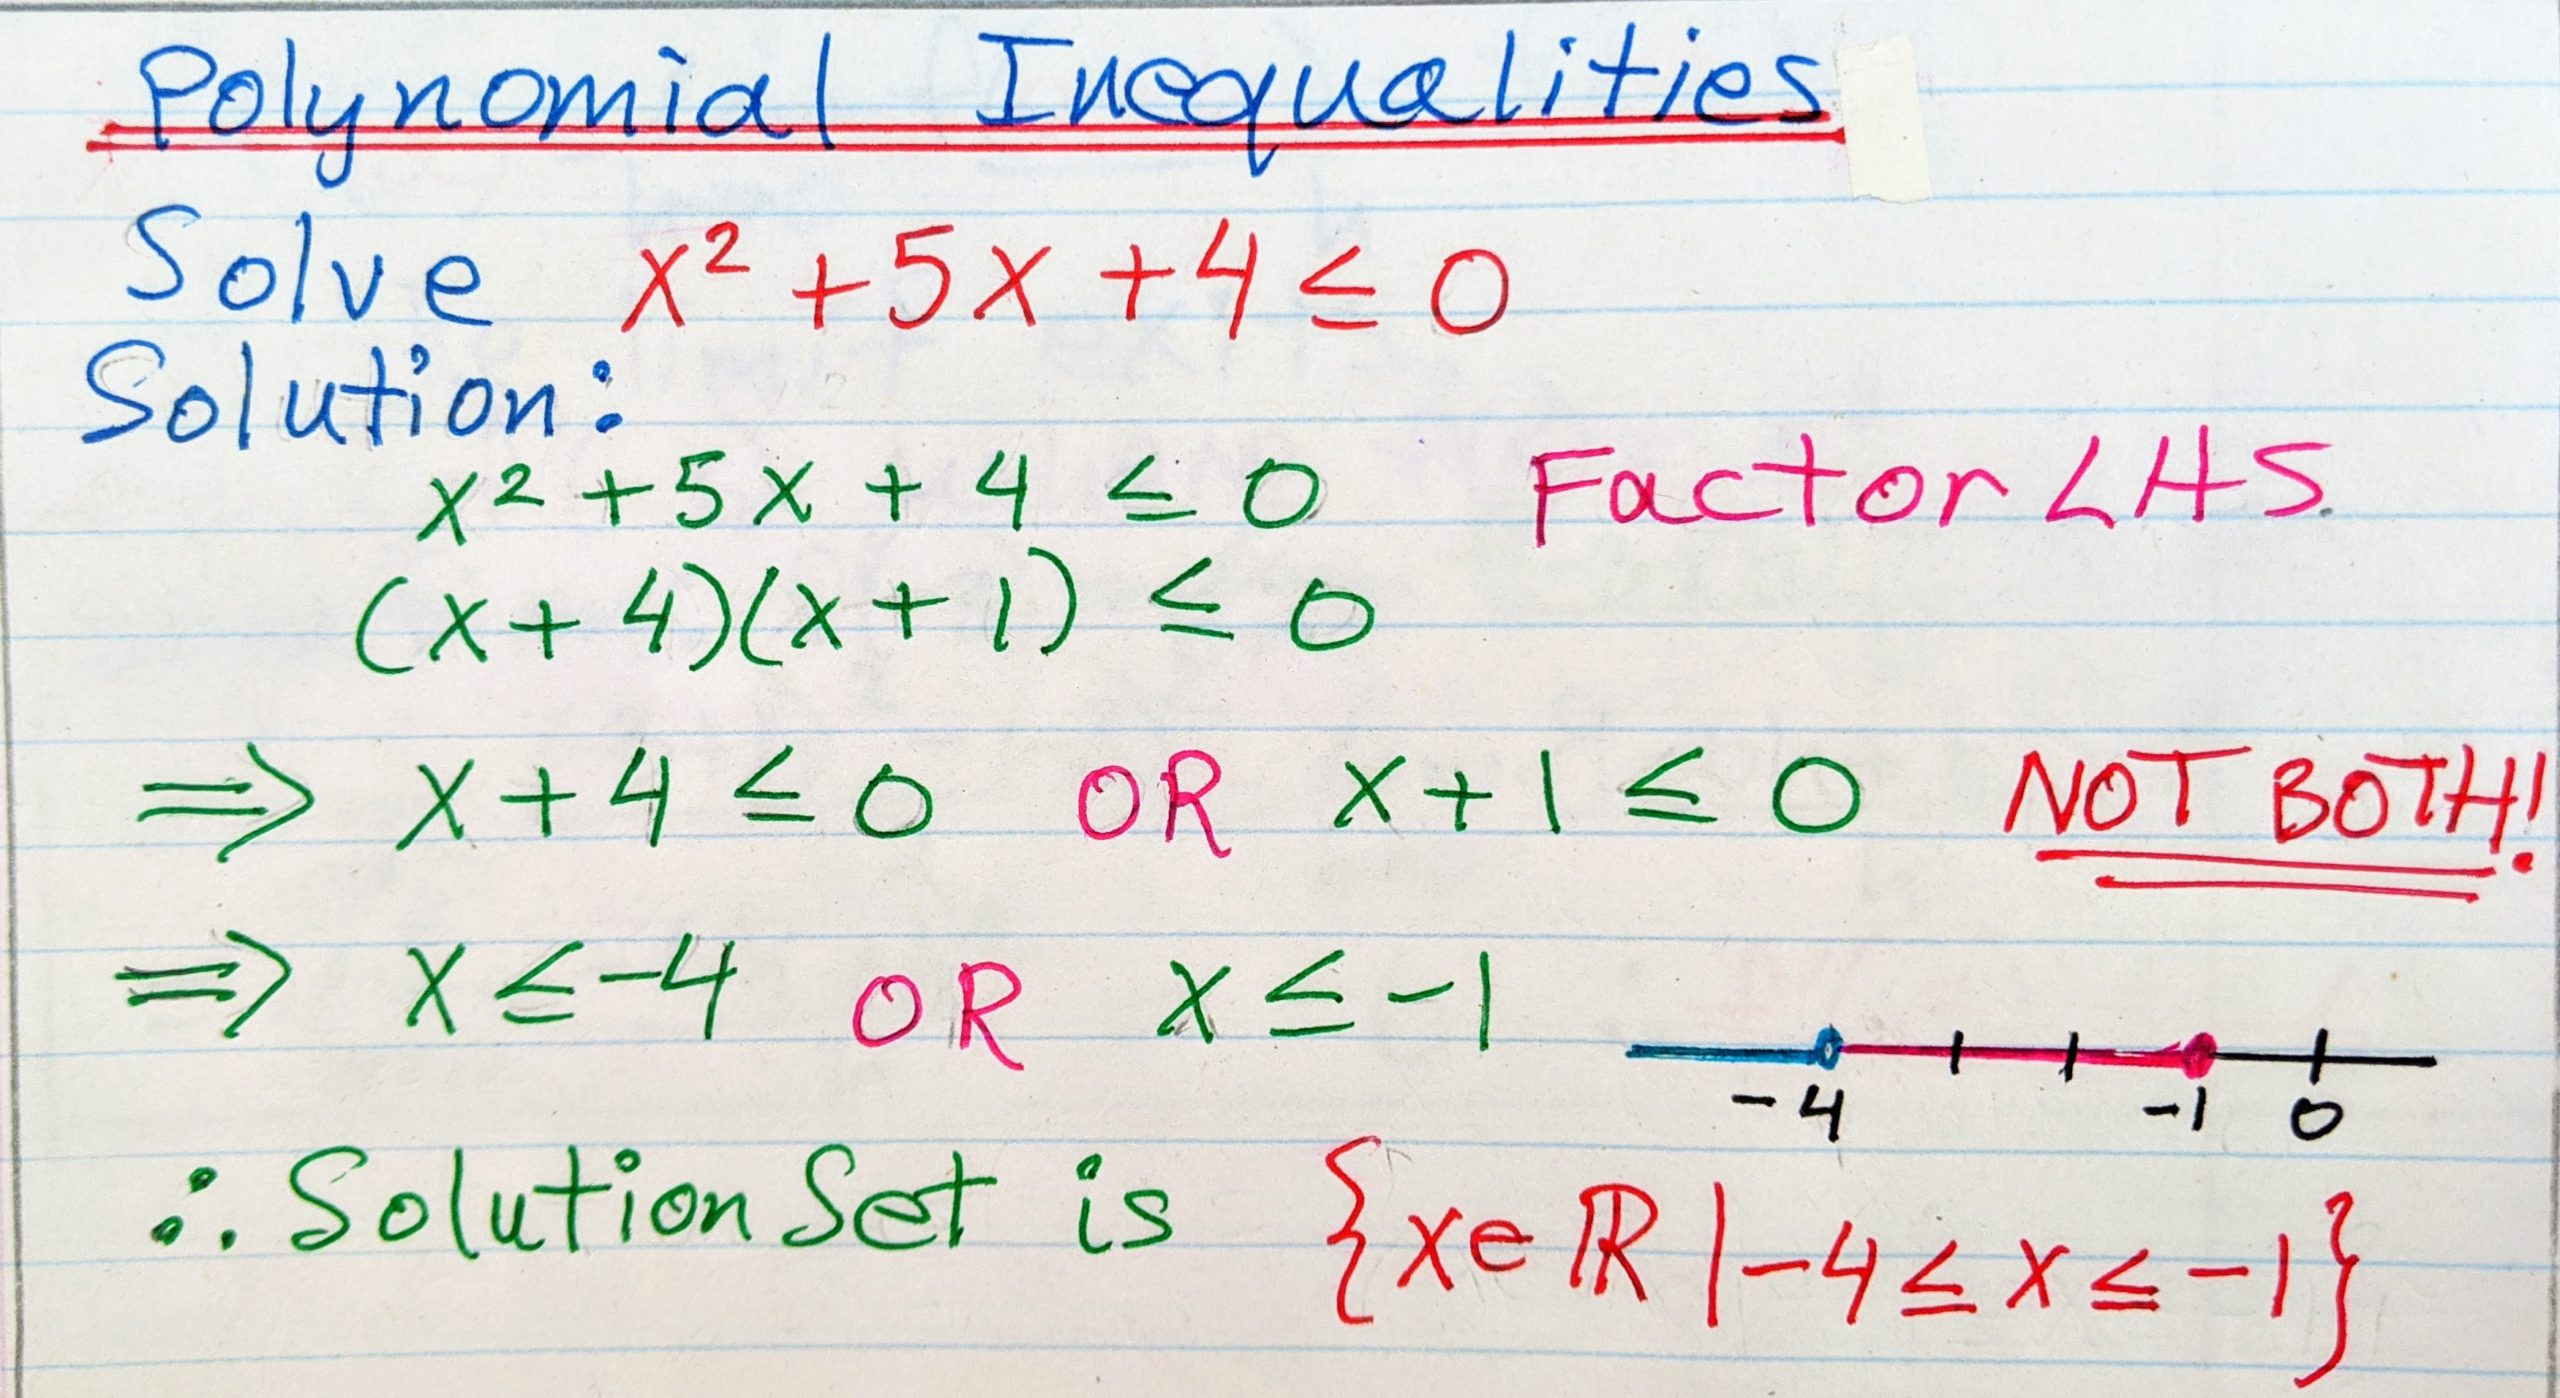 Polynomial Inequalities
Solve x² + 5x + 4 ≤ 0
Solution:
x² + 5x + 4 ≤ 0 Factor LHS.
(x + 4)(x + 1) ≤ 0
⇒ x + 4 ≤ 0 OR x + 1 ≤ 0 NOT BOTH!
⇒ x ≤ -4 OR x ≤ -1
-4 -1 0
∴ Solution Set is {x∈ℝ | -4 ≤ x ≤ -1}